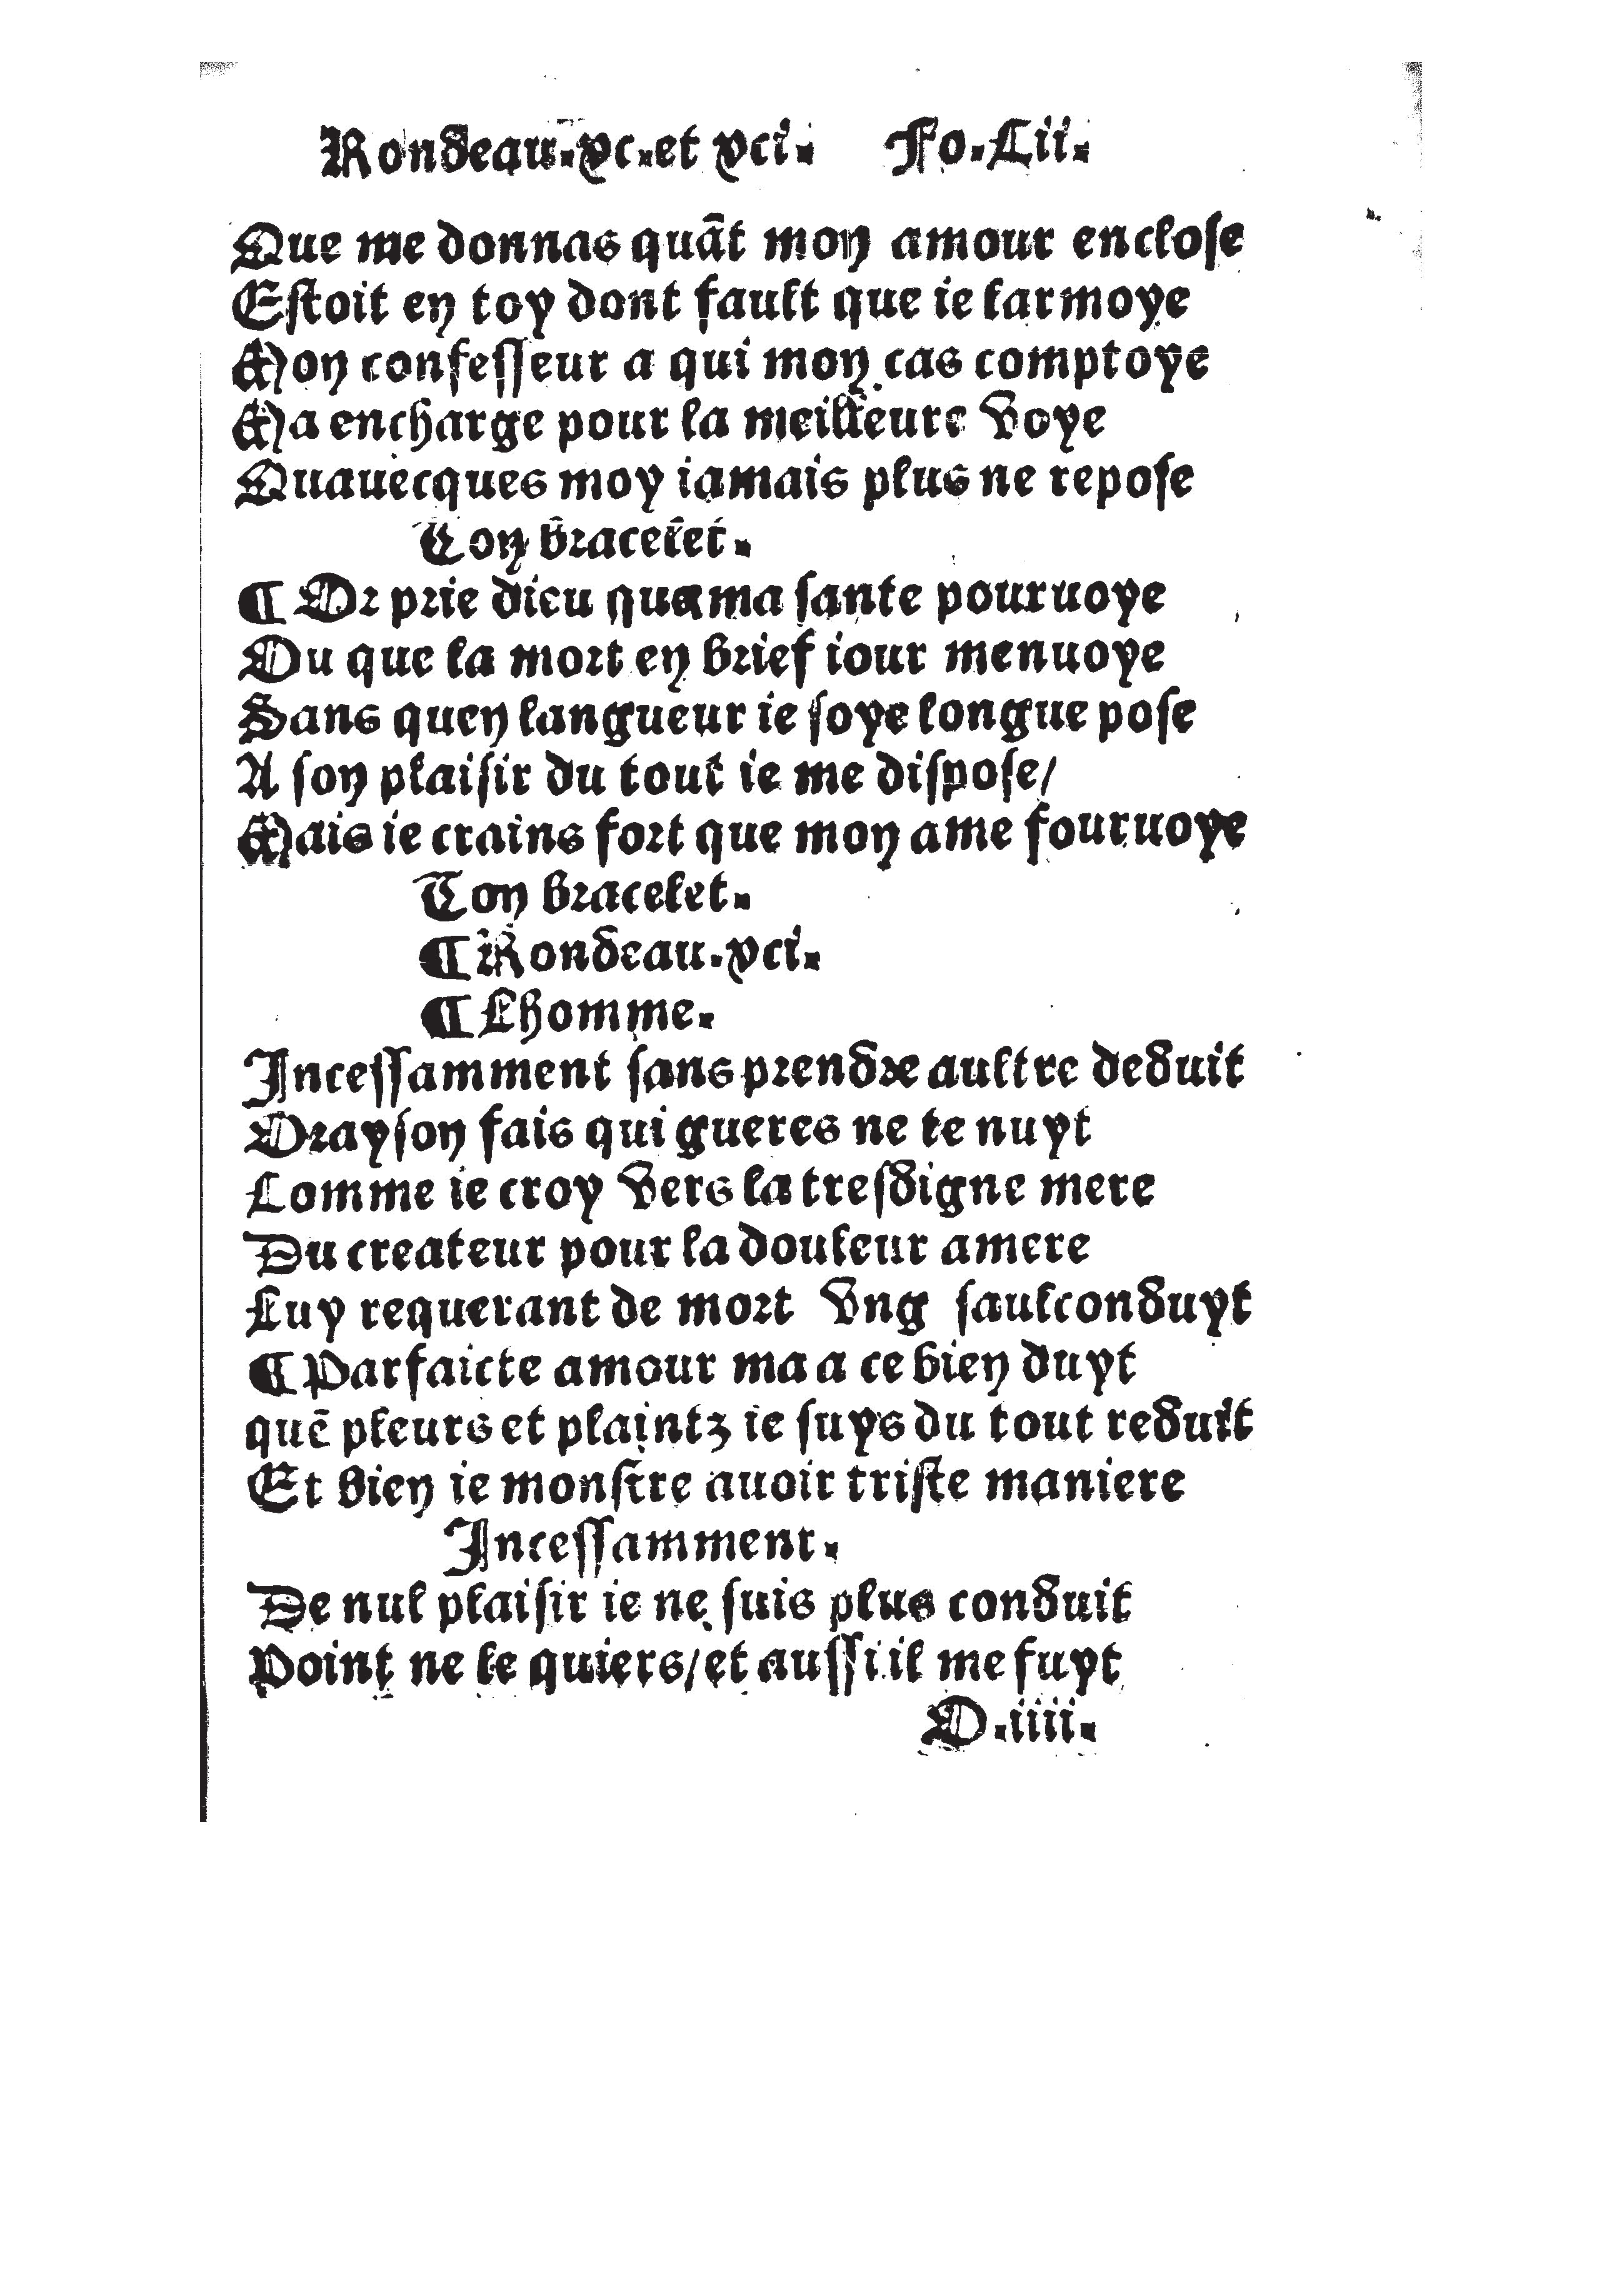 Rondeau.xc.et xci. Fo.Lii.
Que me donnas quãt mon amour enclose
Estoit en toy dont fault que ie larmoye
Mon confesseur a qui mon cas comptoye
Ma encharge pour la meilleure voye
Quauecques moy iamais plus ne repose
Ton bracelet.
¶ Or prie dieu qua ma sante pouruoye
Ou que la mort en brief iour menuoye
Sans quen langueur ie soye longue pose
A son plaisir du tout ie me dispose/
Mais ie crains fort que mon ame fouruoye
Ton bracelet.
¶ Rondeau.xci.
¶ Lhomme.
Incessamment sans prendre aultre deduit
Orayson fais qui gueres ne te nuyt
Comme ie croy vers la tresdigne mere
Du createur pour la douleur amere
Luy requerant de mort vng saulconduyt
¶ Parfaicte amour ma a ce bien duyt
quẽ pleurs et plaintz ie suys du tout reduit
Et bien ie monstre auoir triste maniere
Incessamment.
De nul plaisir ie ne suis plus conduit
Point ne le quiers/et aussi il me fuyt
O.iiii.